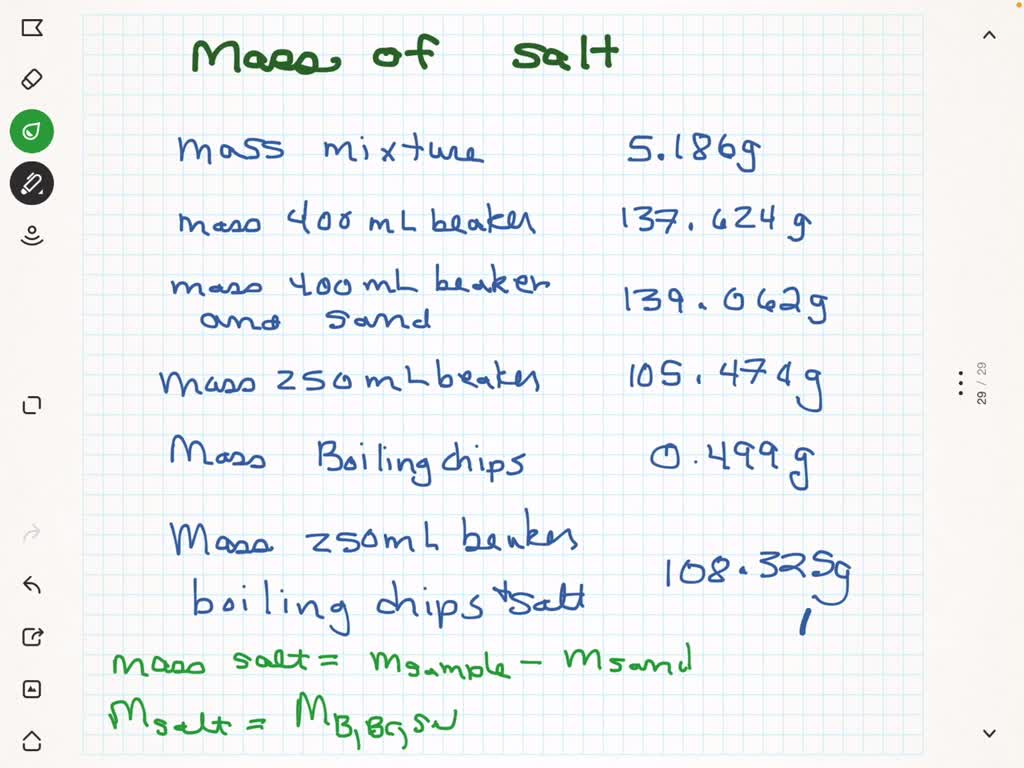 Mass of salt
mass mixture 5.186g
mass 400 mL beaker 137.624 g
mass 400mL beaker
and sand 139.062g
mass 250mL beaker 105.474g
Mass Boiling chips 0.499g
Mass 250mL beaker
boiling chips + Salt 108.325g
mass salt = msample - msand
Msalt = MB,BC,
29 / 29